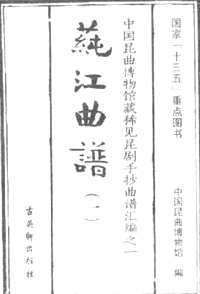 国家「十三五」重点图书
中国昆曲博物馆 编
中国昆曲博物馆藏稀见昆剧手抄曲谱汇编之一
蒓江曲譜(一)
古吴轩出版社